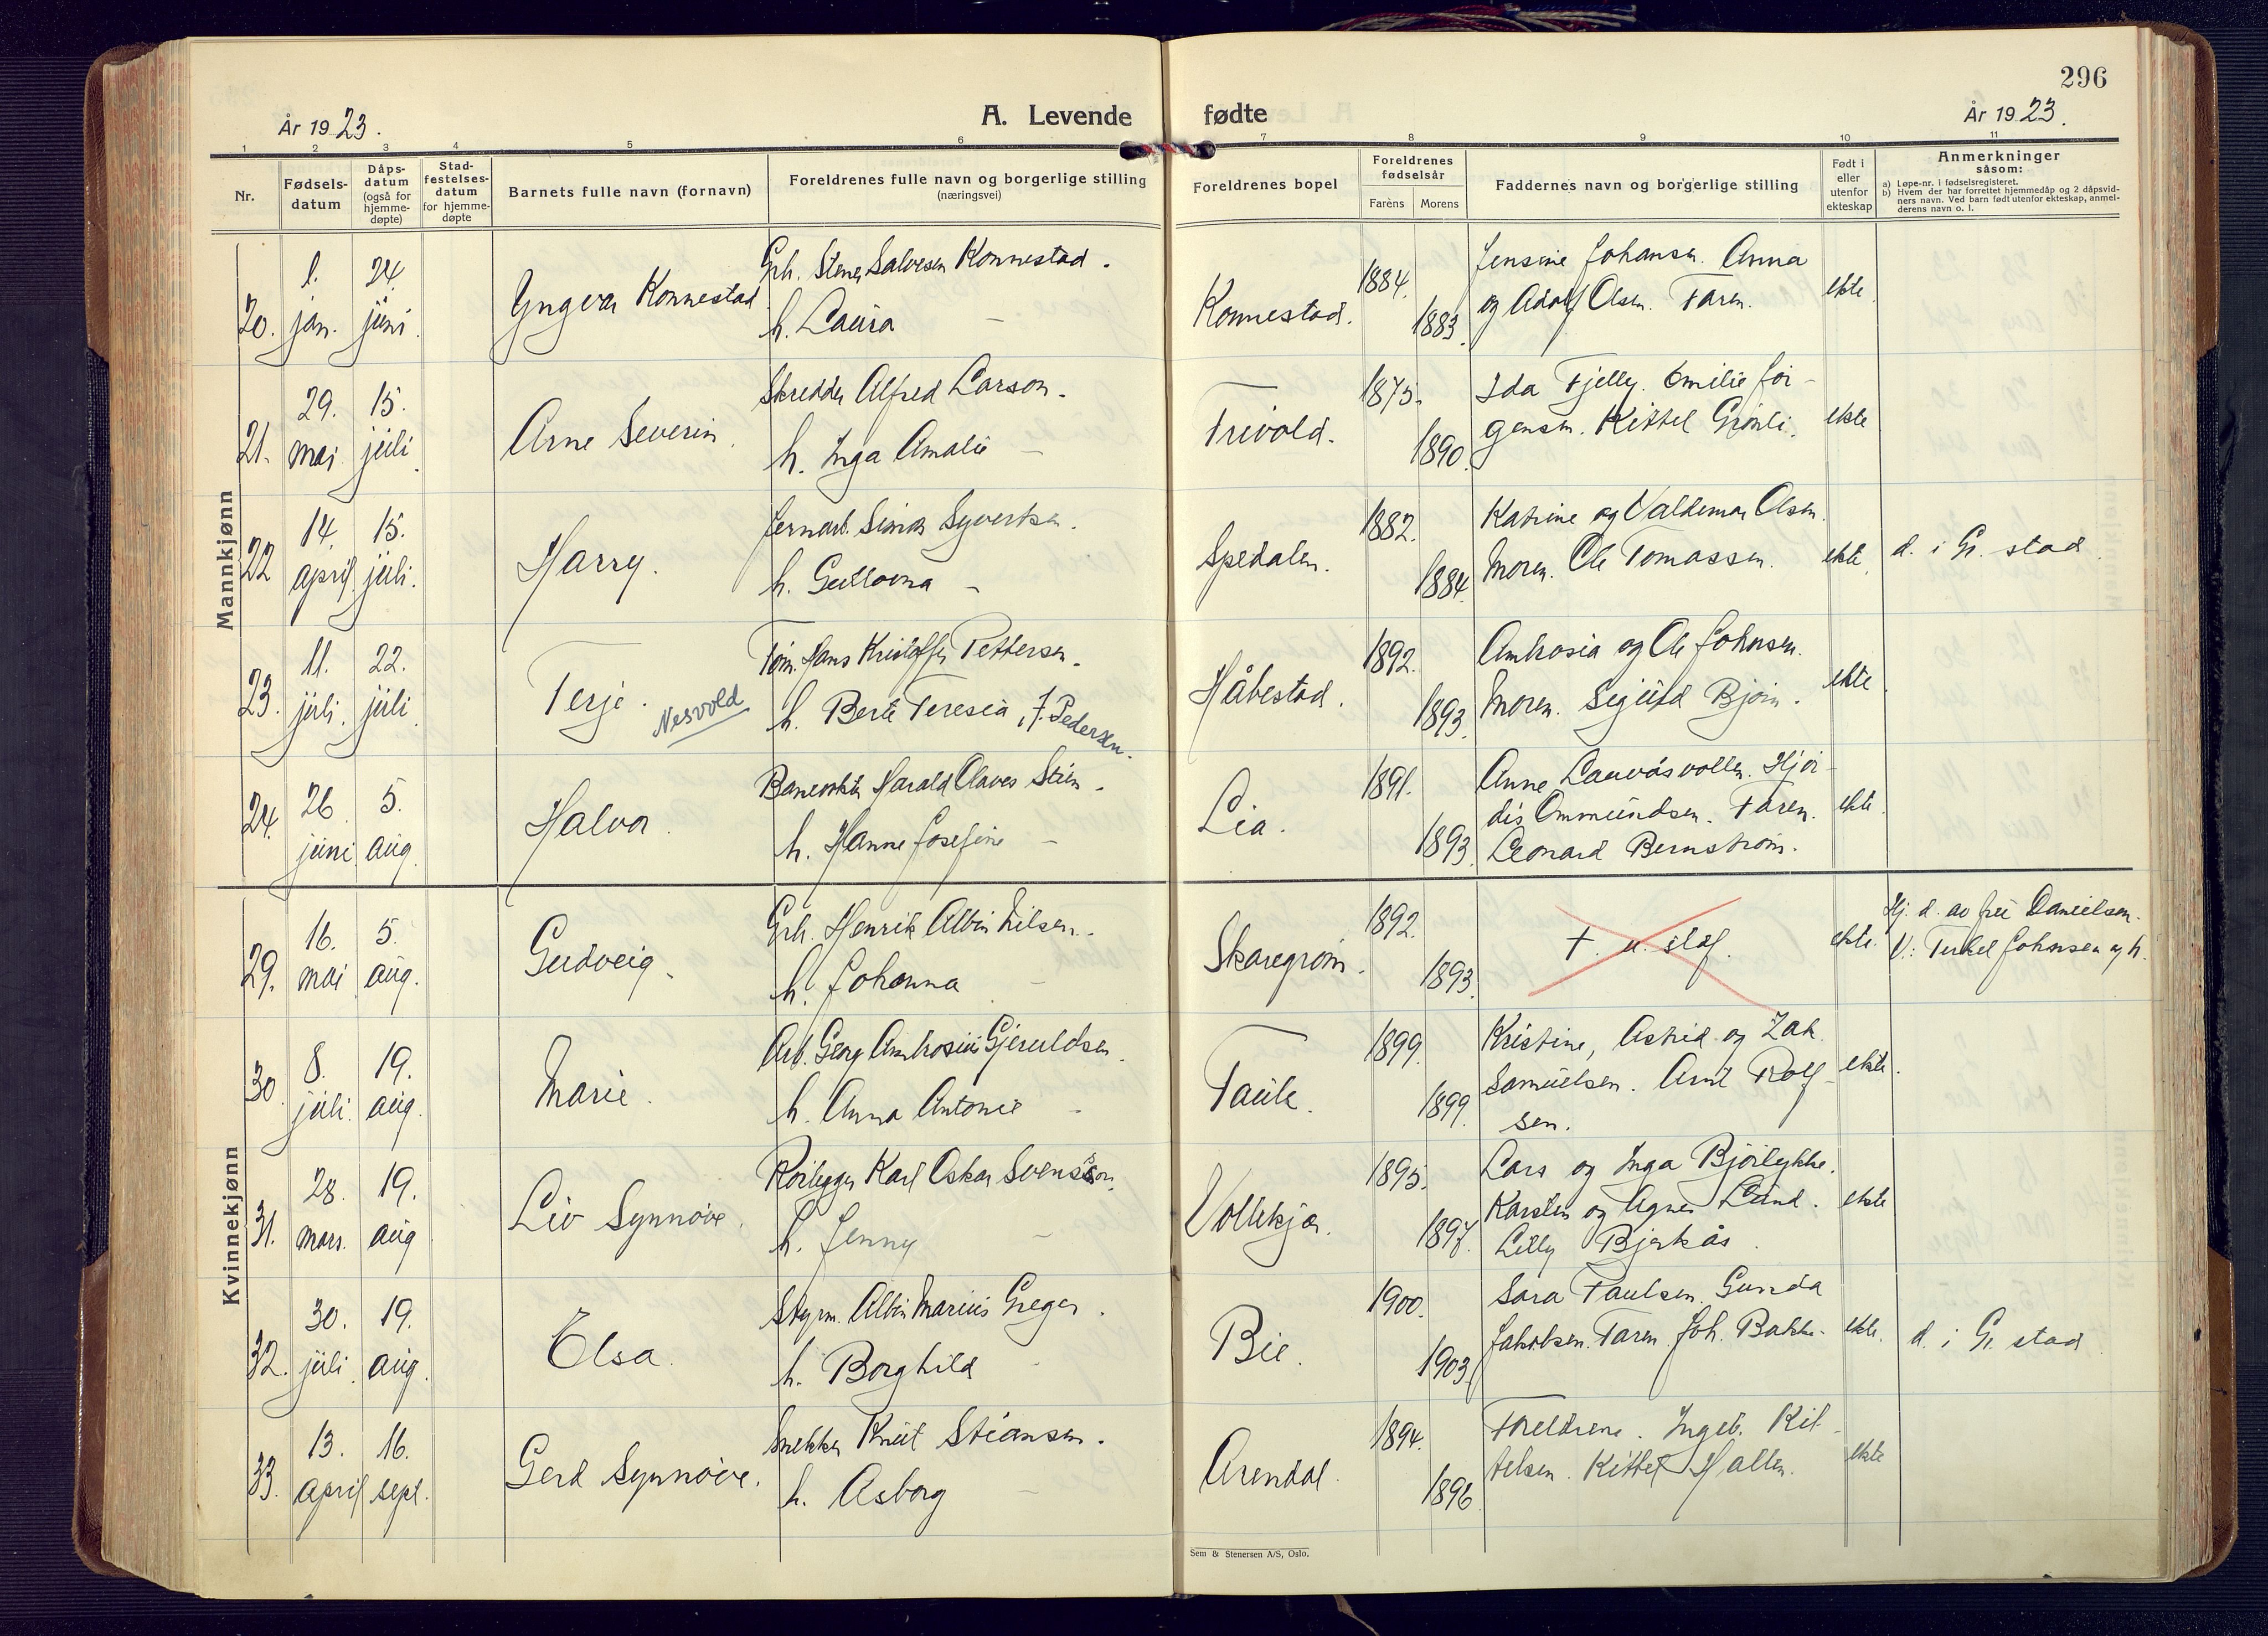 296
År 1923.
A. Levende fødte
År 1923.
1 2 3 4 5 6 7 8 9 10 11
Nr.
Fødsels-
datum
Dåps-
datum
(også for
hjemme-
døpte)
Stad-
festelses-
datum
for hjemme-
døpte
Barnets fulle navn (fornavn)
Foreldrenes fulle navn og borgerlige stilling
(næringsvei)
Foreldrenes bopel
Foreldrenes
fødselsår
Farens
Morens
Faddernes navn og borgerlige stilling
Født i
eller
utenfor
ekteskap
Anmerkninger
såsom:
a) Løpe-nr. i fødselsregisteret.
b) Hvem der har forrettet hjemmedåp og 2 dåpsvid-
ners navn. Ved barn født utenfor ekteskap, anmel-
derens navn o. l.
Mannkjønn
20. 1. jan. 24. juni. Yngvar Konnestad
Grh. Stener Salvesen Konnestad.
h. Laura –
Konnestad. 1884. 1883.
Jensine Johansen. Anna
og Adolf Olsen. Faren.
ekte.
21. 29. mai 15. juli. Arne Severin.
Skredder Alfred Larson.
h. Inga Amalie –
Trivold. 1875. 1890.
Ida Fjelly. Emilie Jør-
gensen. Kittel Grønli.
ekte
22 14. april. 15. juli. Harry.
Jernarb. Simon Syvertsen.
h. Gullovna –
Spedalen. 1882. 1884.
Katrine og Valdemar Olsen.
Moren. Ole Tomassen.
ekte.
d. i Gr. stad
23. 11. juli. 22. juli Terje. Nesvold
Tøm. Hans Kristoffer Pettersen.
h. Berte Teresia, f. Pedersen.
Håbestad. 1892. 1893.
Ambrosia og Ole Johnsen.
Moren. Sigurd Bjørn.
ekte.
24. 26. juni 5. aug. Halvor.
Banevokter Harald Olaves Stien.
h. Hanne Josefine –
Lia. 1891. 1893.
Anne Lauvåsvollen. Hjør-
dis Ommundsen. Faren.
Leonard Bernstrøm.
ekte.
Kvinnekjønn
29. 16. mai 5. aug. Gudveig.
Grh. Henrik Albin Nilsen.
h. Johanna –
Skaregrøm. 1892. 1893.
ekte.
Hj. d. av fru Danielsen.
V.: Terkel Johnsen og h.
30. 8. juli. 19. aug. Marie.
Arb. Georg Ambrosius Gjeruldsen.
h. Anna Antonie –
Taule. 1899. 1899.
Kristine, Astrid og Zak.
Samuelsen. Arnt Rolf-
sen.
ekte.
31. 28. mars. 19. aug Liv Synnøve.
Rørlegger Karl Oskar Svensson.
h. Jenny –
Vollekjær. 1895. 1897.
Lars og Inga Bjørlykke.
Karsten og Agnes Lund.
Lilly Bjerkås.
ekte
32. 30. juli. 19. aug. Elsa.
Styrm. Albin Marius Greger.
h. Borghild –
Bie. 1900. 1903.
Sara Paulsen. Gunda
Jakobsen. Faren. Joh. Bakke.
ekte.
d. i Gr. stad
33. 13. april 16. sept. Gerd Synnøve.
Snekker Knut Stiansen.
h. Asborg –
Arendal. 1894. 1896.
Foreldrene. Ingeb. Kit-
telsen. Kittel Hallen.
ekte
Sem & Stenersen A/S, Oslo.